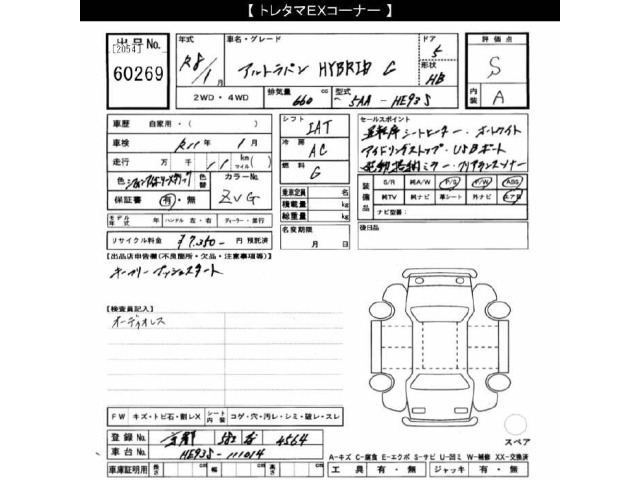 【 トレタマEXコーナー 】
出品No.
[2054]
60269
年式
R8/1月
車名・グレード
アルトラパン HYBRID G
ドア
5
形状
HB
評価点
S
内装
A
2WD・4WD
排気量
660 cc
型式
5AA-HE93S
車歴 自家用・( )
車検 R11年 1月
走行 万 千 11 km (マイル)
色
色替
カラーNo.
ZVG
保証書 有・無
モデル年式 年 ハンドル 左・右 ディーラー・並行
リサイクル料金 ¥7,350- 円 預託済
シフト
IAT
冷房
AC
燃料
G
乗車定員 名
積載量 kg
総重量 kg
名変期限
月 日
セールスポイント
運転席シートヒーター・オートライト
アイドリングストップ・USBポート
電動格納ミラー・クリアランスソナー
装備品
S/R 純A/W P/S P/W ABS
純TV 純ナビ 革シート 外ナビ エアB
ナビ型番:
後日品
【出品店申告欄(不良箇所・欠品・注意事項等)】
キーフリー プッシュスタート
【検査員記入】
オーディオレス
FW キズ・トビ石・割レX シート内装 コゲ・穴・汚レ・シミ・破レ・スレ
登録No. 京都 4564
車台No. HE93S-111014
車庫証明用 長さ cm 幅 cm 高さ cm
スペア
A-キズ C-腐食 E-エクボ S-サビ U-凹ミ W-補修 XX-交換済
工具 有・無 ジャッキ 有・無